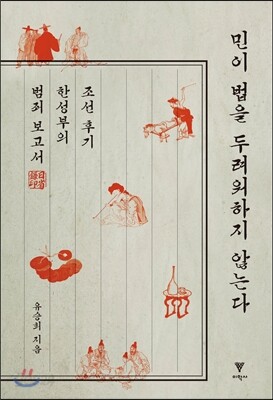 민이 법을 두려워하지 않는다
조선 후기
한성부의
범죄 보고서
유승희 지음
이학사